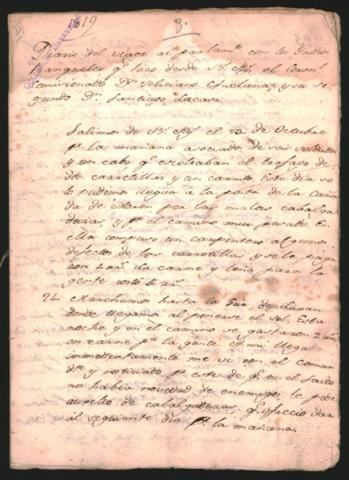 819
8.
Diario del viage al parlam.to con los Indios
Ranqueles q.e hizo desde Bs. As. el Coronel
Comisionado Dn. Feliciano Chiclana, y su se
gundo Dn. Santiago Lacasa
Salimos de Bs. As. el 22 de Octubre
p.r la mañana asociados de seis soldados
y un cabo q.e escoltaban el
dos carretillas y un carrito. Este dia no
pudimos llegar a la posta de la Caña
da de Moron por las malas cabalga
duras, y p.r el camino muy pesado. En
ella compuso un carpintero algunos
defectos de las carretillas y se le paga
ron 2 la carne y leña para la
gente costó
24 Marchamos hasta la Gua. de Lujan
donde llegamos al ponerse el Sol. Esta
noche y en el camino se gastaron
en carne p.a la gente. a mi llegada
inmediatamente me vi con el Coman
dte. y noticiado p.r este de q. en el Salto
no habia novedad de enemigos, le pedi
auxilio de cabalgaduras, q. ofreció dar
al seguiente dia p.r la mañana.